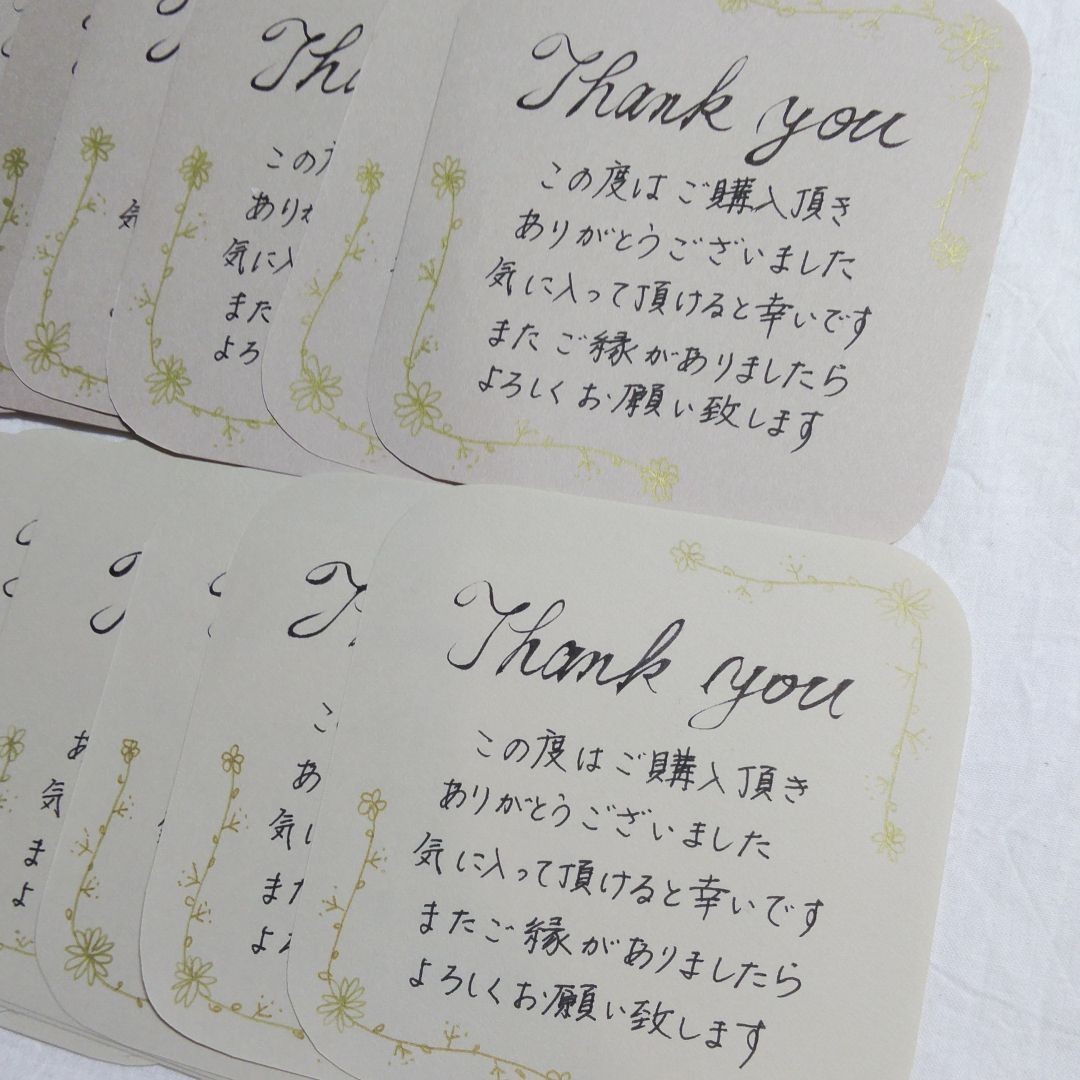 Thank you
この度はご購入頂き
ありがとうございました
気に入って頂けると幸いです
またご縁がありましたら
よろしくお願い致します
Th
この
あり
気に入
また
よろ
気
Thank you
この度はご購入頂き
ありがとうございました
気に入って頂けると幸いです
またご縁がありましたら
よろしくお願い致します
T
こ
あ
気に
また
よろ
あ
気
ま
よ